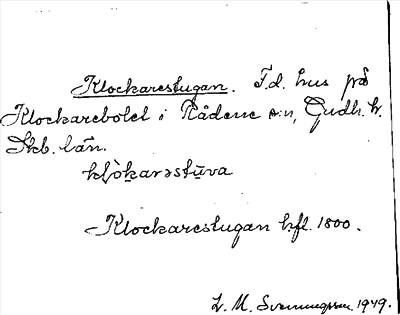 Klockarestugan. F.d. hus på
Klockarebolet i Rådene s:n, Gudh. h.
Skb. län.
klòkarəstūva
Klockarestugan kfl. 1800.
L. M. Svenungsson. 1949.